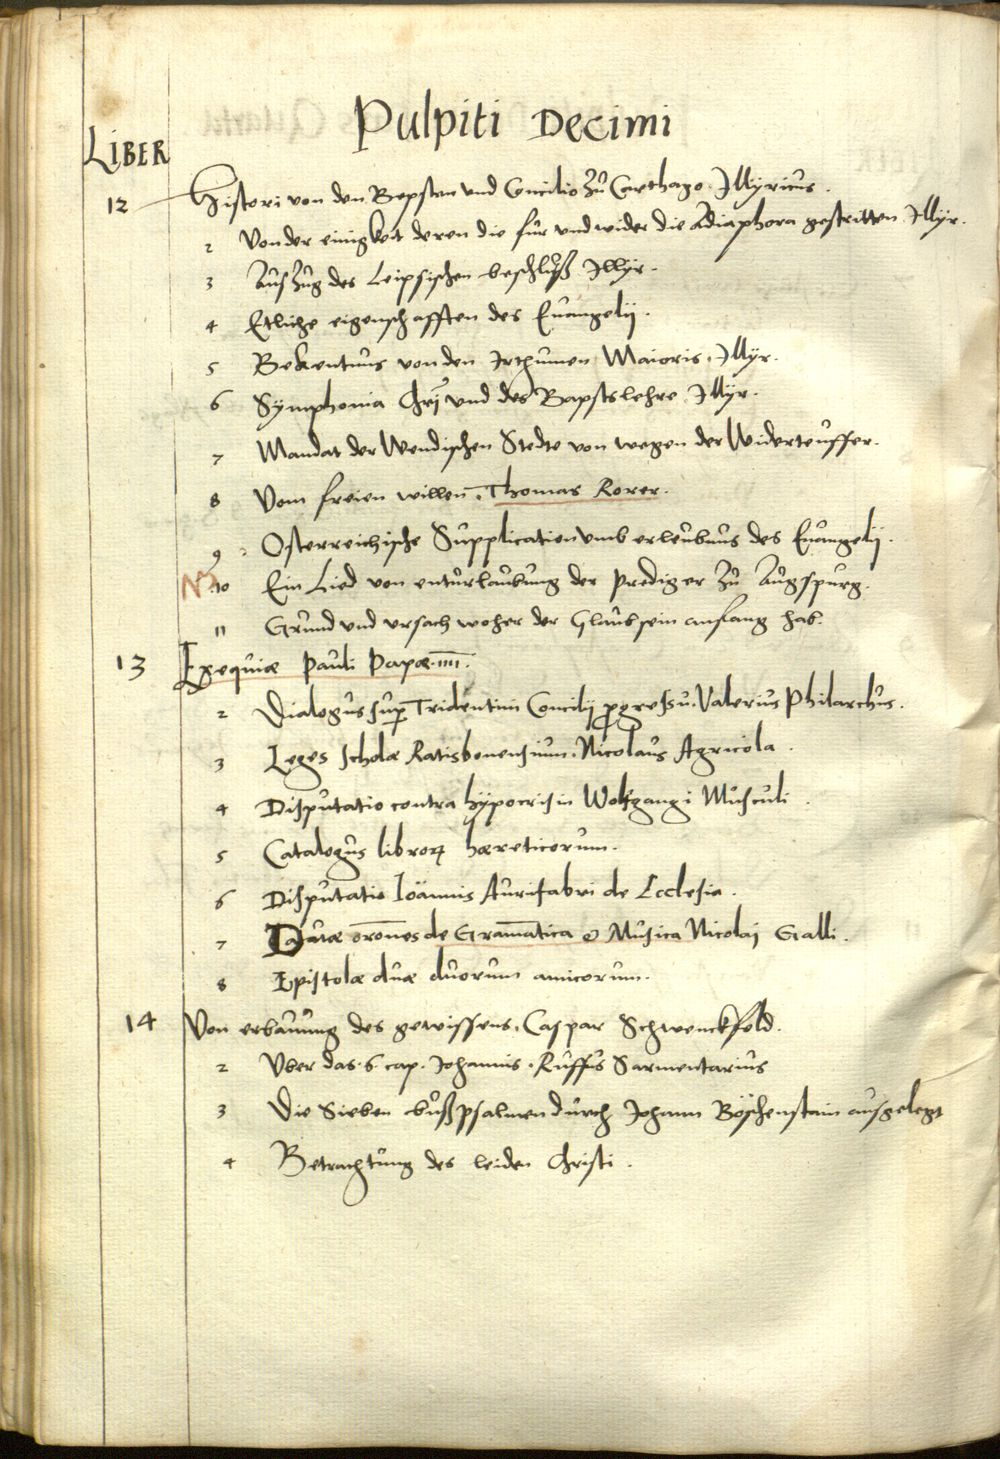 Pulpiti Decimi
LIBER
12 Histori von den Bepsten und Concilio zů Carthago. Illyricus.
2 Von der einigkeit deren die für und wider die Adiaphora gestritten Illyr.
3 Auszůg des Leipsischen beschlůß Illyr.
4 Etliche eigenschafften des Euangelij.
5 Bekentnus von den Irthumen Maioris. Illyr.
6 Symphonia Chrī und des Bapsts lehre Illyr.
7 Mandat der Wendischen Stedte von wegen der Widerteuffer.
8 Vom freien willen. Thomas Rorer.
9 Osterreichische Supplication umb erleubnus des Euangelij.
10 Ein Lied von entůrlaubung der prediger zů Augspurg.
11 Grund und ursach woher der Glaub sein anfang hab.
13 Exequiæ Pauli Papæ .iii.
2 Dialogus sup Tridentini Concilij progressu. Valerius Philarchus.
3 Leges scholæ Ratisbonensium. Nicolaus Agricola.
4 Disputatio contra hÿpocrisin Wolfgangi Musculi.
5 Catalogus libroꝝ hæreticorum.
6 Disputatio Ioännis Aurifabri de Ecclesia.
7 Duæ orōnes de Gram̄atica & Musica Nicolaj Galli.
8 Epistolæ duæ duorum amicorum.
14 Von erbauung des gewissens. Caspar Schwenckfeld.
2 Uber das .6. cap. Johannis. Ruffus Sarmentarius
3 Die Sieben bußpsalmen durch Johann Böschenstain ausgelegt
4 Betrachtung des leiden Christi.